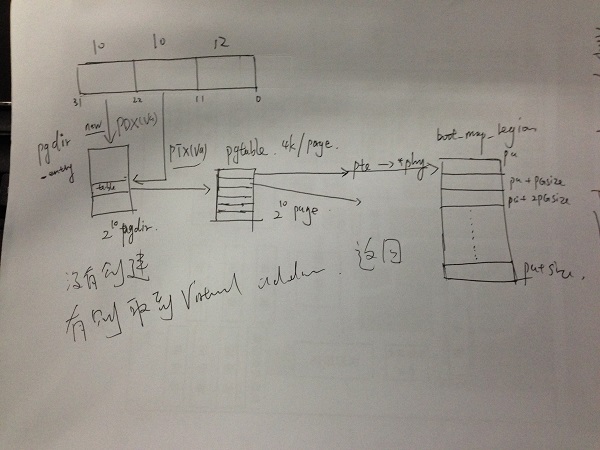 10 10 12
31 22 11 0
pgdir
-entry
new
PDX(va)
PTX(va)
table
2^10 pgdir.
pgtable. 4k/page.
2^10 page
pte → *phy
boot_map_region
pa
pa + pGsize
pa + 2pGsize
pa + size.
没有创建
有则取到 Virtual addr. 返回